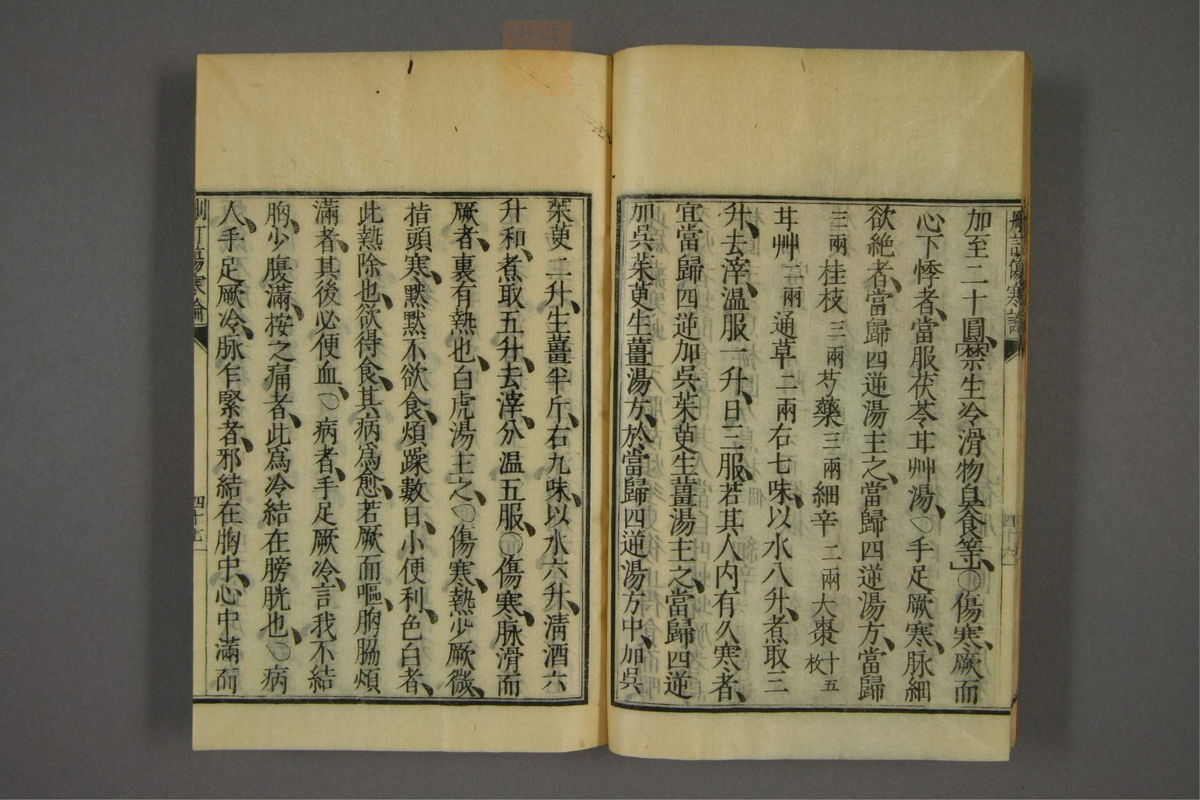 加至二十圓、禁生冷滑物臭食等」〇傷寒、厥而
心下悸者、當服茯苓甘艸湯、〇手足厥寒、脉細
欲絶者、當歸四逆湯主之、當歸四逆湯方、當歸
三兩桂枝三兩芍藥三兩細辛二兩大棗十五枚
甘艸二兩通草二兩右七味、以水八升、煮取三
升、去滓、温服一升、日三服、若其人内有久寒者、
宜當歸四逆加吳茱萸生薑湯主之、當歸四逆
加吳茱萸生薑湯方、於當歸四逆湯方中、加吳
茱萸二升、生薑半斤、右九味、以水六升、淸酒六
升和、煮取五升、去滓、分温五服、〇傷寒、脉滑而
厥者、裏有熱也、白虎湯主之、〇傷寒、熱少厥微、
指頭寒、默默不欲食、煩躁數日、小便利、色白者、
此熱除也、欲得食、其病爲愈、若厥而嘔、胸脇煩
滿者、其後必便血、〇病者、手足厥冷、言我不結
胸、少腹滿、按之痛者、此爲冷結在膀胱也、〇病
人、手足厥冷、脉乍緊者、邪結在胸中、心中滿而
刪訂傷寒論
四十七